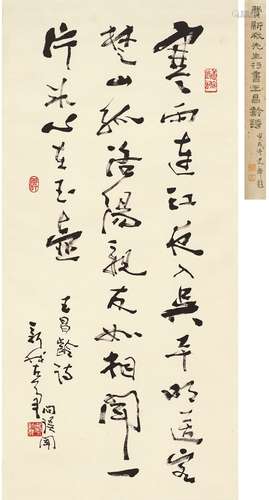 寒雨連江夜入吳平明送客
楚山孤洛陽親友如相聞一
片冰心在玉壺
王昌齡詩
新我左筆
問誤聞
費新我先生行書王昌齡詩